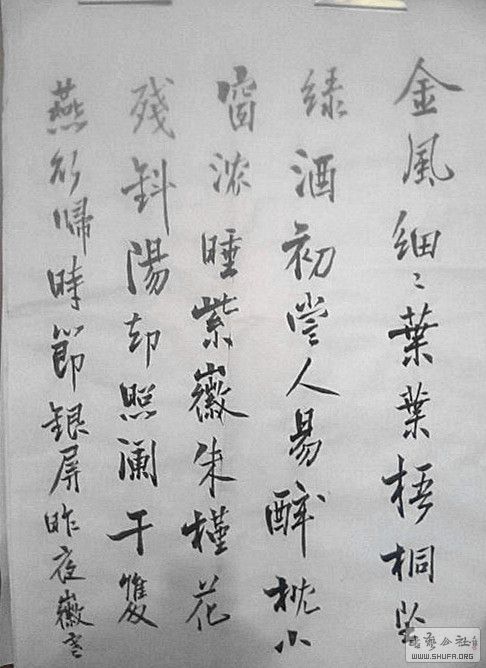 金風細〻葉葉梧桐墜
緑酒初嘗人易醉枕小
窗浓睡紫薇朱槿花
殘斜陽却照澜干雙
燕欲歸時節銀屏昨夜薇寒
WWW.SHUFA.ORG